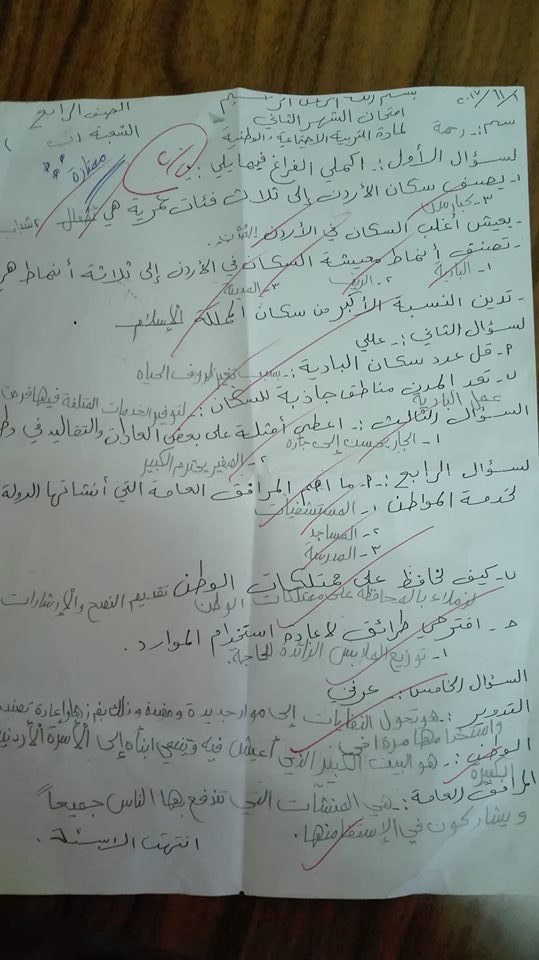 بسم الله الرحمن الرحيم
امتحان الشهر الثاني
الصف الرابع
لمادة التربية الاجتماعية والوطنية
الشعبة
سم:- رحمة
ممتازة
لسؤال الأول:- اكملي الفراغ فيما يلي:-
١- يصنف سكان الأردن إلى ثلاث فئات عمرية هي ١- أطفال ٢- شباب
٣- كبار سن
- يعيش أغلب السكان في الأردن المدن.
- تصنف أنماط معيشة السكان في الأردن إلى ثلاثة أنماط هي
١- البادية ٢- الريف ٣- المدينة
- تدين النسبة الأكبر من سكان المملكة الإسلام.
لسؤال الثاني:- عللي
٩- قل عدد سكان البادية:- بسبب الظروف الحياه
ب- تعد المدن مناطق جاذبة للسكان:- لتوفير الخدمات المختلفة فيها فرص
عمل البادية
السؤال الثالث:- اعطي أمثلة على بعض العادات والتقاليد في
١- الجار يحسن إلى جاره ٢- الصغير يحترم الكبير
لسؤال الرابع:- ٩- ما اهم المرافق العامة التي أنشأتها الدولة
لخدمة المواطن ١- المستشفيات
٢- المساجد
٣- المدرسة
ب- كيف نحافظ على ممتلكات الوطن تقديم النصح والإرشادات
لزملاء بالمحافظة على ممتلكات الوطن
ج- اقترحي طرائق لإعادة استخدام الموارد.
١- توزيع الملابس الزائدة للحاجة.
السؤال الخامس:- عرفي
التدوير:- هو تحول النفايات إلى موارد جديدة ومفيدة وذلك بفرزها وإعادة
واستخدامها مرة اخرى
الوطن:- هو البيت الكبير الذي أعيش فيه وينتمي ابنأه إلى الأسرة الأردنية
الكبيرة
المرافق العامة:- هي المنشئات التي تنفع بها الناس جميعاً
ويشاركون في الإستفادة منها.
انتهت الاسئلة.